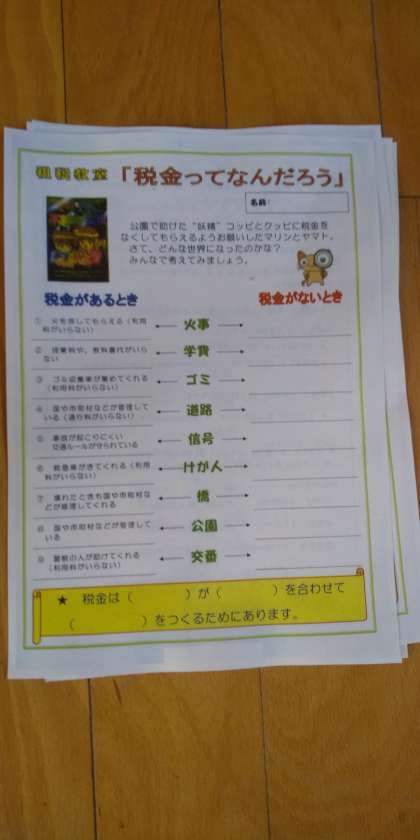 租税教室「税金ってなんだろう」
名前：
公園で助けた“妖精”コッピとクッピに税金を
なくしてもらえるようお願いしたマリンとヤマト。
さて、どんな世界になったのかな？
みんなで考えてみましょう。
税金があるとき
税金がないとき
① 火を消してもらえる（利用
料がいらない）
火事
② 授業料や、教科書代がいら
ない
学費
③ ゴミ収集車が集めてくれる
（利用料がいらない）
ゴミ
④ 国や市町村などが管理して
いる（通行料がいらない）
道路
⑤ 事故が起こりにくい
交通ルールが守られている
信号
⑥ 救急車がきてくれる（利用
料がいらない）
けが人
⑦ 壊れたときも国や市町村な
どが修理してくれる
橋
⑧ 国や市町村などが管理して
いる
公園
⑨ 警察の人が助けてくれる
（利用料がいらない）
交番
★ 税金は（　　　）が（　　　）を合わせて
（　　　）をつくるためにあります。